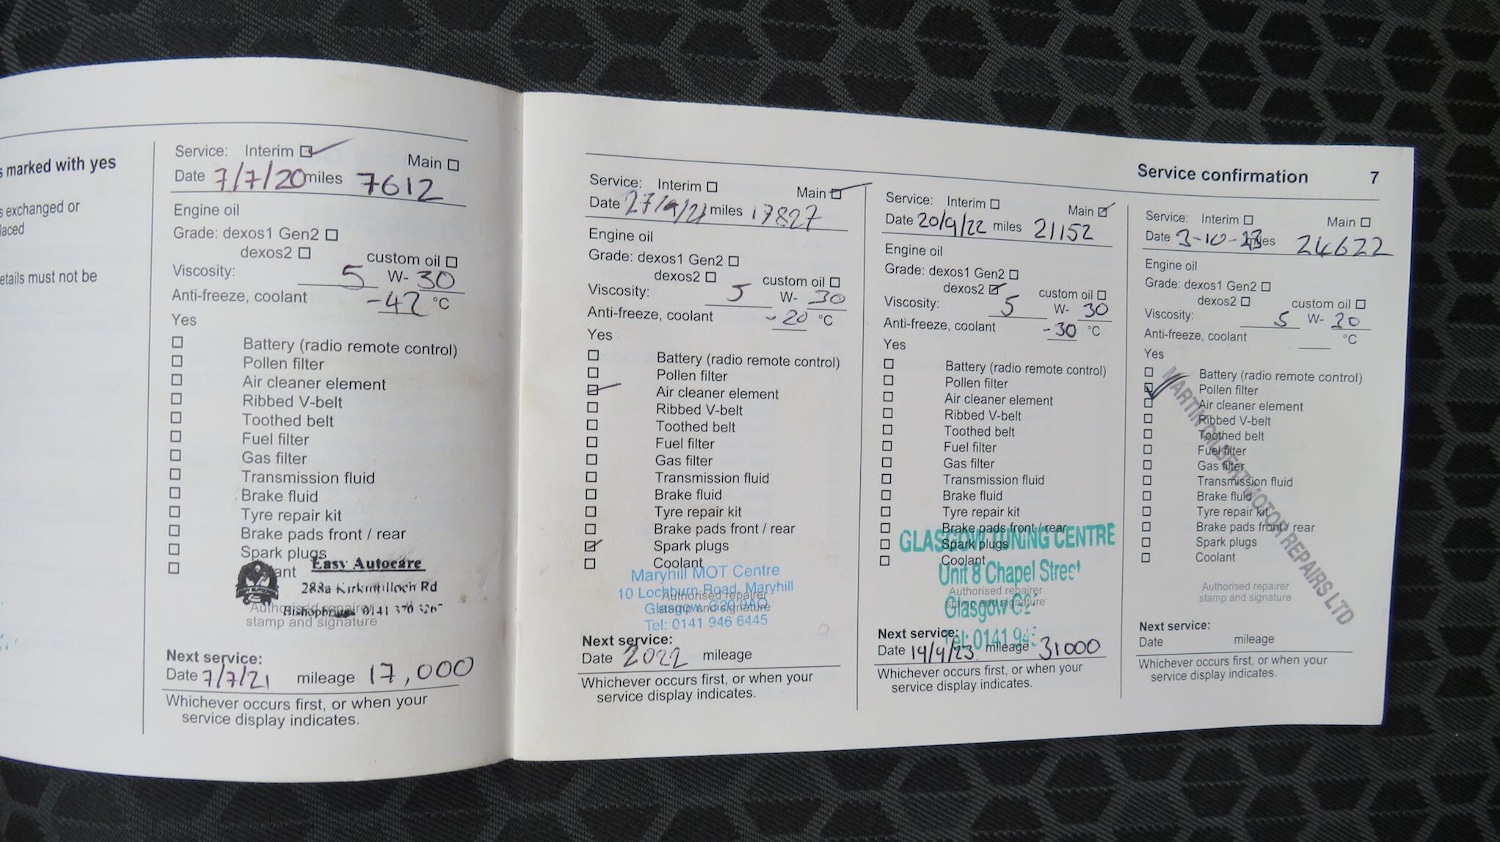 s marked with yes
s exchanged or
laced
etails must not be
Service: Interim Main
Date 7/7/20 miles 7612
Engine oil
Grade: dexos1 Gen2
dexos2 custom oil
Viscosity: 5 W- 30
Anti-freeze, coolant -42 °C
Yes
Battery (radio remote control)
Pollen filter
Air cleaner element
Ribbed V-belt
Toothed belt
Fuel filter
Gas filter
Transmission fluid
Brake fluid
Tyre repair kit
Brake pads front / rear
Spark plugs
ant
Easy Autocare
288a Kirkintilloch Rd
Bishopbriggs 0141
Authorised repairer
stamp and signature
Next service:
Date 7/7/21 mileage 17,000
Whichever occurs first, or when your
service display indicates.
Service confirmation 7
Service: Interim Main
Date 27/9/21 miles 17827
Engine oil
Grade: dexos1 Gen2
dexos2 custom oil
Viscosity: 5 W- 30
Anti-freeze, coolant -20 °C
Yes
Battery (radio remote control)
Pollen filter
Air cleaner element
Ribbed V-belt
Toothed belt
Fuel filter
Gas filter
Transmission fluid
Brake fluid
Tyre repair kit
Brake pads front / rear
Spark plugs
Coolant
Maryhill MOT Centre
10 Lochburn Road, Maryhill
Authorised repairer
Glasgow, G20
stamp and signature
Tel: 0141 946 6445
Next service:
Date 2022 mileage
Whichever occurs first, or when your
service display indicates.
Service: Interim Main
Date 20/9/22 miles 21152
Engine oil
Grade: dexos1 Gen2
dexos2 custom oil
Viscosity: 5 W- 30
Anti-freeze, coolant -30 °C
Yes
Battery (radio remote control)
Pollen filter
Air cleaner element
Ribbed V-belt
Toothed belt
Fuel filter
Gas filter
Transmission fluid
Brake fluid
Tyre repair kit
Brake pads front / rear
Spark plugs
Coolant
GLASGOW TUNING CENTRE
Unit 8 Chapel Street
Authorised repairer
stamp and signature
Glasgow
Tel: 0141
Next service:
Date 19/9/23 mileage 31000
Whichever occurs first, or when your
service display indicates.
Service: Interim Main
Date 3-10-23 miles 24622
Engine oil
Grade: dexos1 Gen2
dexos2 custom oil
Viscosity: 5 W- 30
Anti-freeze, coolant °C
Yes
Battery (radio remote control)
Pollen filter
Air cleaner element
Ribbed V-belt
Toothed belt
Fuel filter
Gas filter
Transmission fluid
Brake fluid
Tyre repair kit
Brake pads front / rear
Spark plugs
Coolant
MARTIN GILBERT MOTOR REPAIRS LTD
Authorised repairer
stamp and signature
Next service:
Date mileage
Whichever occurs first, or when your
service display indicates.